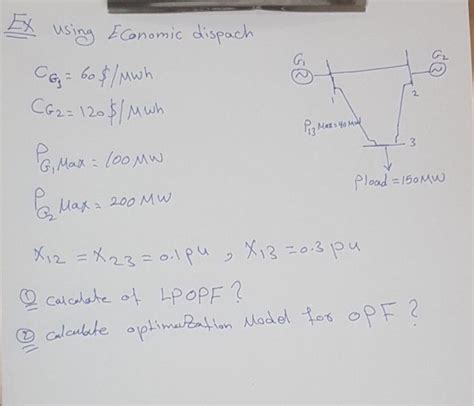 Ex using Economic dispach
CG1 = 60 $/Mwh
CG2 = 120 $/Mwh
PG1 Max = 100 MW
PG2 Max = 200 MW
G1
G2
1
2
P13 Max = 40 MW
3
Pload = 150 MW
X12 = X23 = 0.1 pu , X13 = 0.3 pu
① calculate of LPOPF ?
② calculate optimization Model for OPF ?